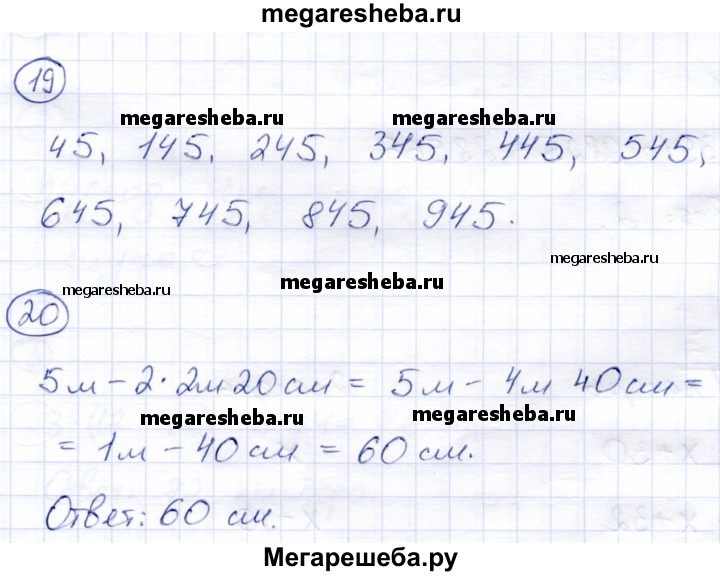 megaresheba.ru
19
megaresheba.ru megaresheba.ru
45, 145, 245, 345, 445, 545,
645, 745, 845, 945.
megaresheba.ru
megaresheba.ru megaresheba.ru
20
5м - 2·2м20см = 5м - 4м 40см =
megaresheba.ru megaresheba.ru
= 1м - 40см = 60см.
Ответ: 60 см.
Мегарешеба.ру